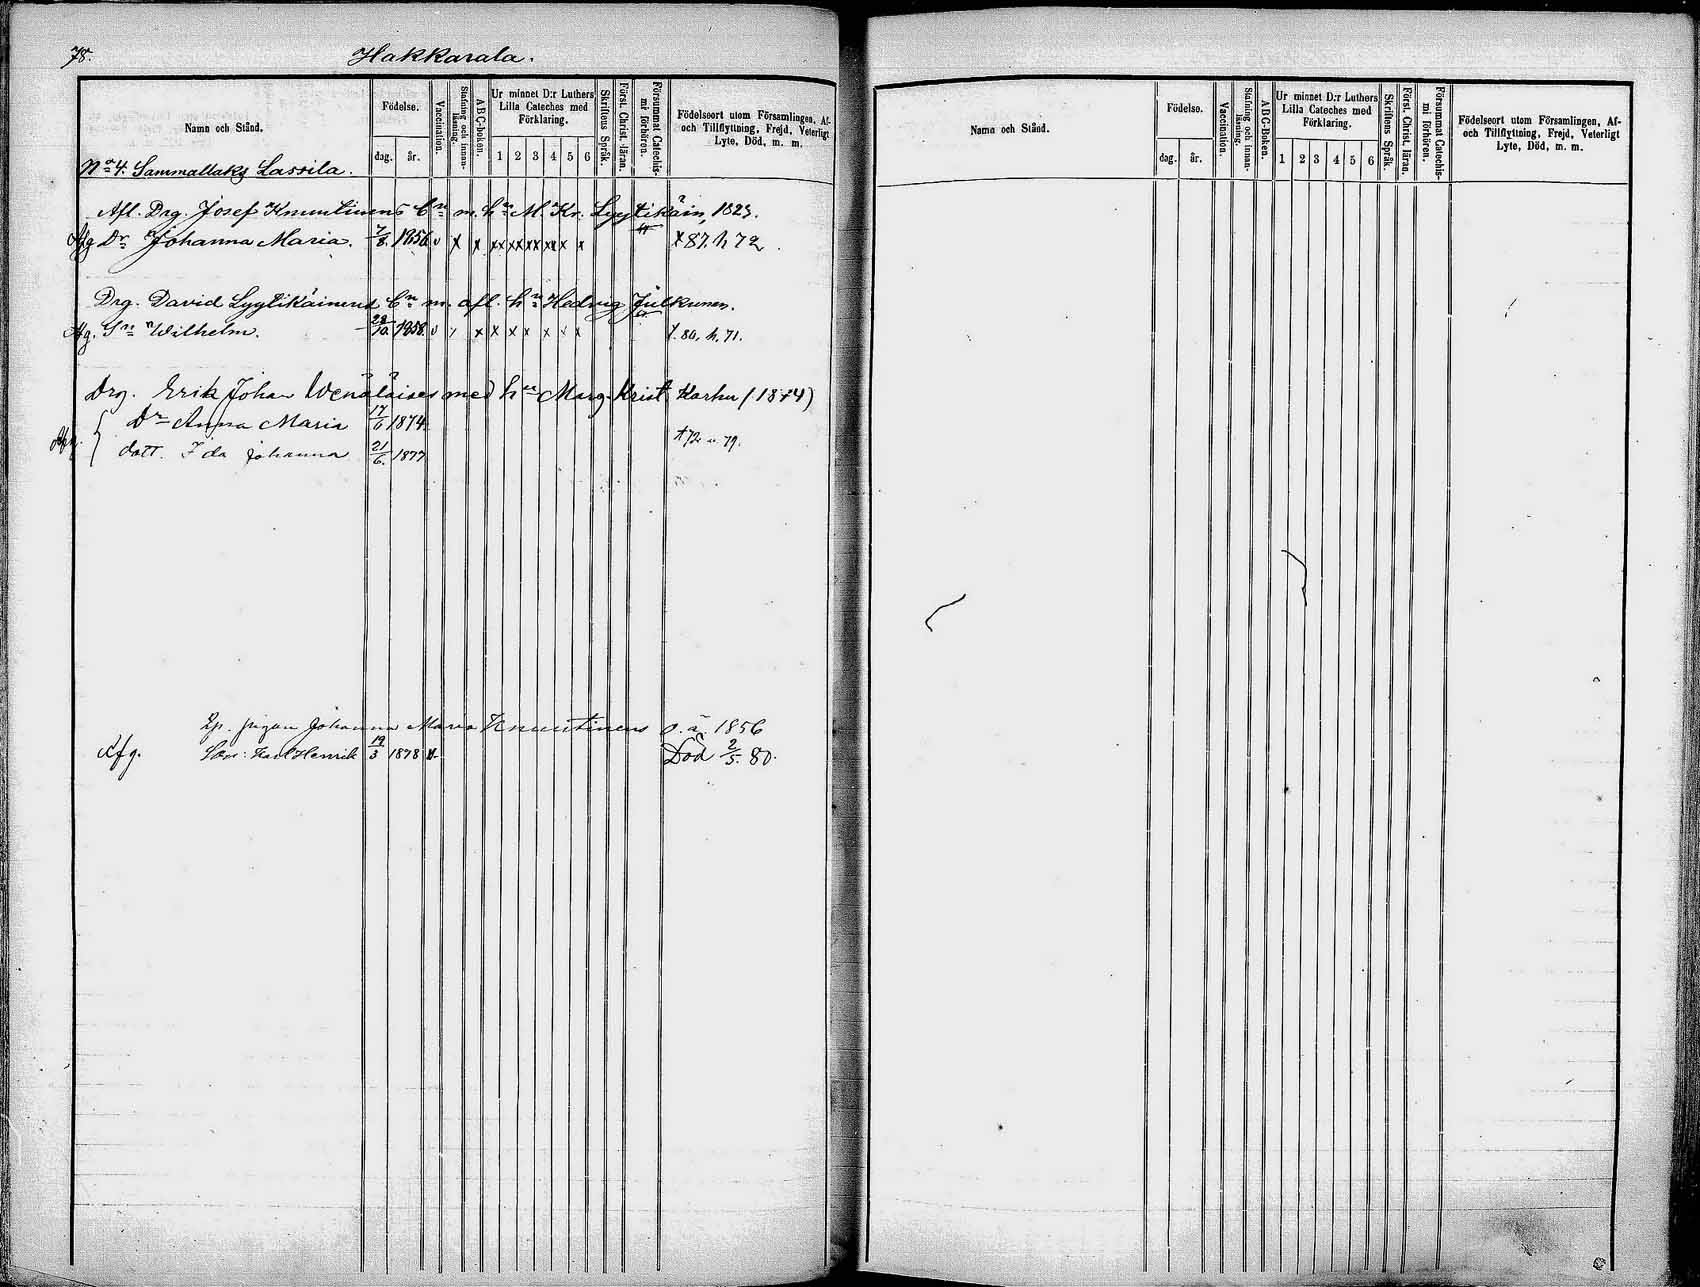 78. Hakkarala.
Namn och Stånd. Födelse. dag. år. Vaccination. Stafning och innanläsning. ABC-boken. Ur minnet D:r Luthers Lilla Cateches med Förklaring. 1 2 3 4 5 6 Skriftens Språk. Först. Christ. läran. Försummat Catechismi förhören. Födelseort utom Församlingen, Af- och Tillflyttning, Frejd, Veterligt Lyte, Död, m. m.
No 4. Sammallaks Lassila.
Afl. Drg. Josef Knuutinens Bn m. hu M. Kr. Lyytikäin, 1823.
Afg Dr Johanna Maria. 7/8. 1856 v x x xx xx xx xx x x x 87. h 72.
Drg. David Lyytikäinens Bn m. afl. hu Hedvig Julkunen.
Afg. Sn Wilhelm. 28/10. 1858. v x x x x x x x 80. h. 71.
Drg. Erik Johan Wenäläises med hu Marg. Krist. Karhu (1874)
Dr Anna Maria 17/6 1874.
Afg. 72 u. 79.
dott. Ida Johanna 21/6. 1877
Lp. pigan Johanna Maria Knuutinens s. å. 1856
Afg. Son: Karl Henrik 19/3 1878 v. Död 2/5. 80.
Namn och Stånd. Födelse. dag. år. Vaccination. Stafning och innanläsning. ABC-Boken. Ur minnet D:r Luthers Lilla Cateches med Förklaring. 1 2 3 4 5 6 Skriftens Språk. Först. Christ. läran. Försummat Catechismi förhören. Födelseort utom Församlingen, Af- och Tillflyttning, Frejd, Veterligt Lyte, Död, m. m.